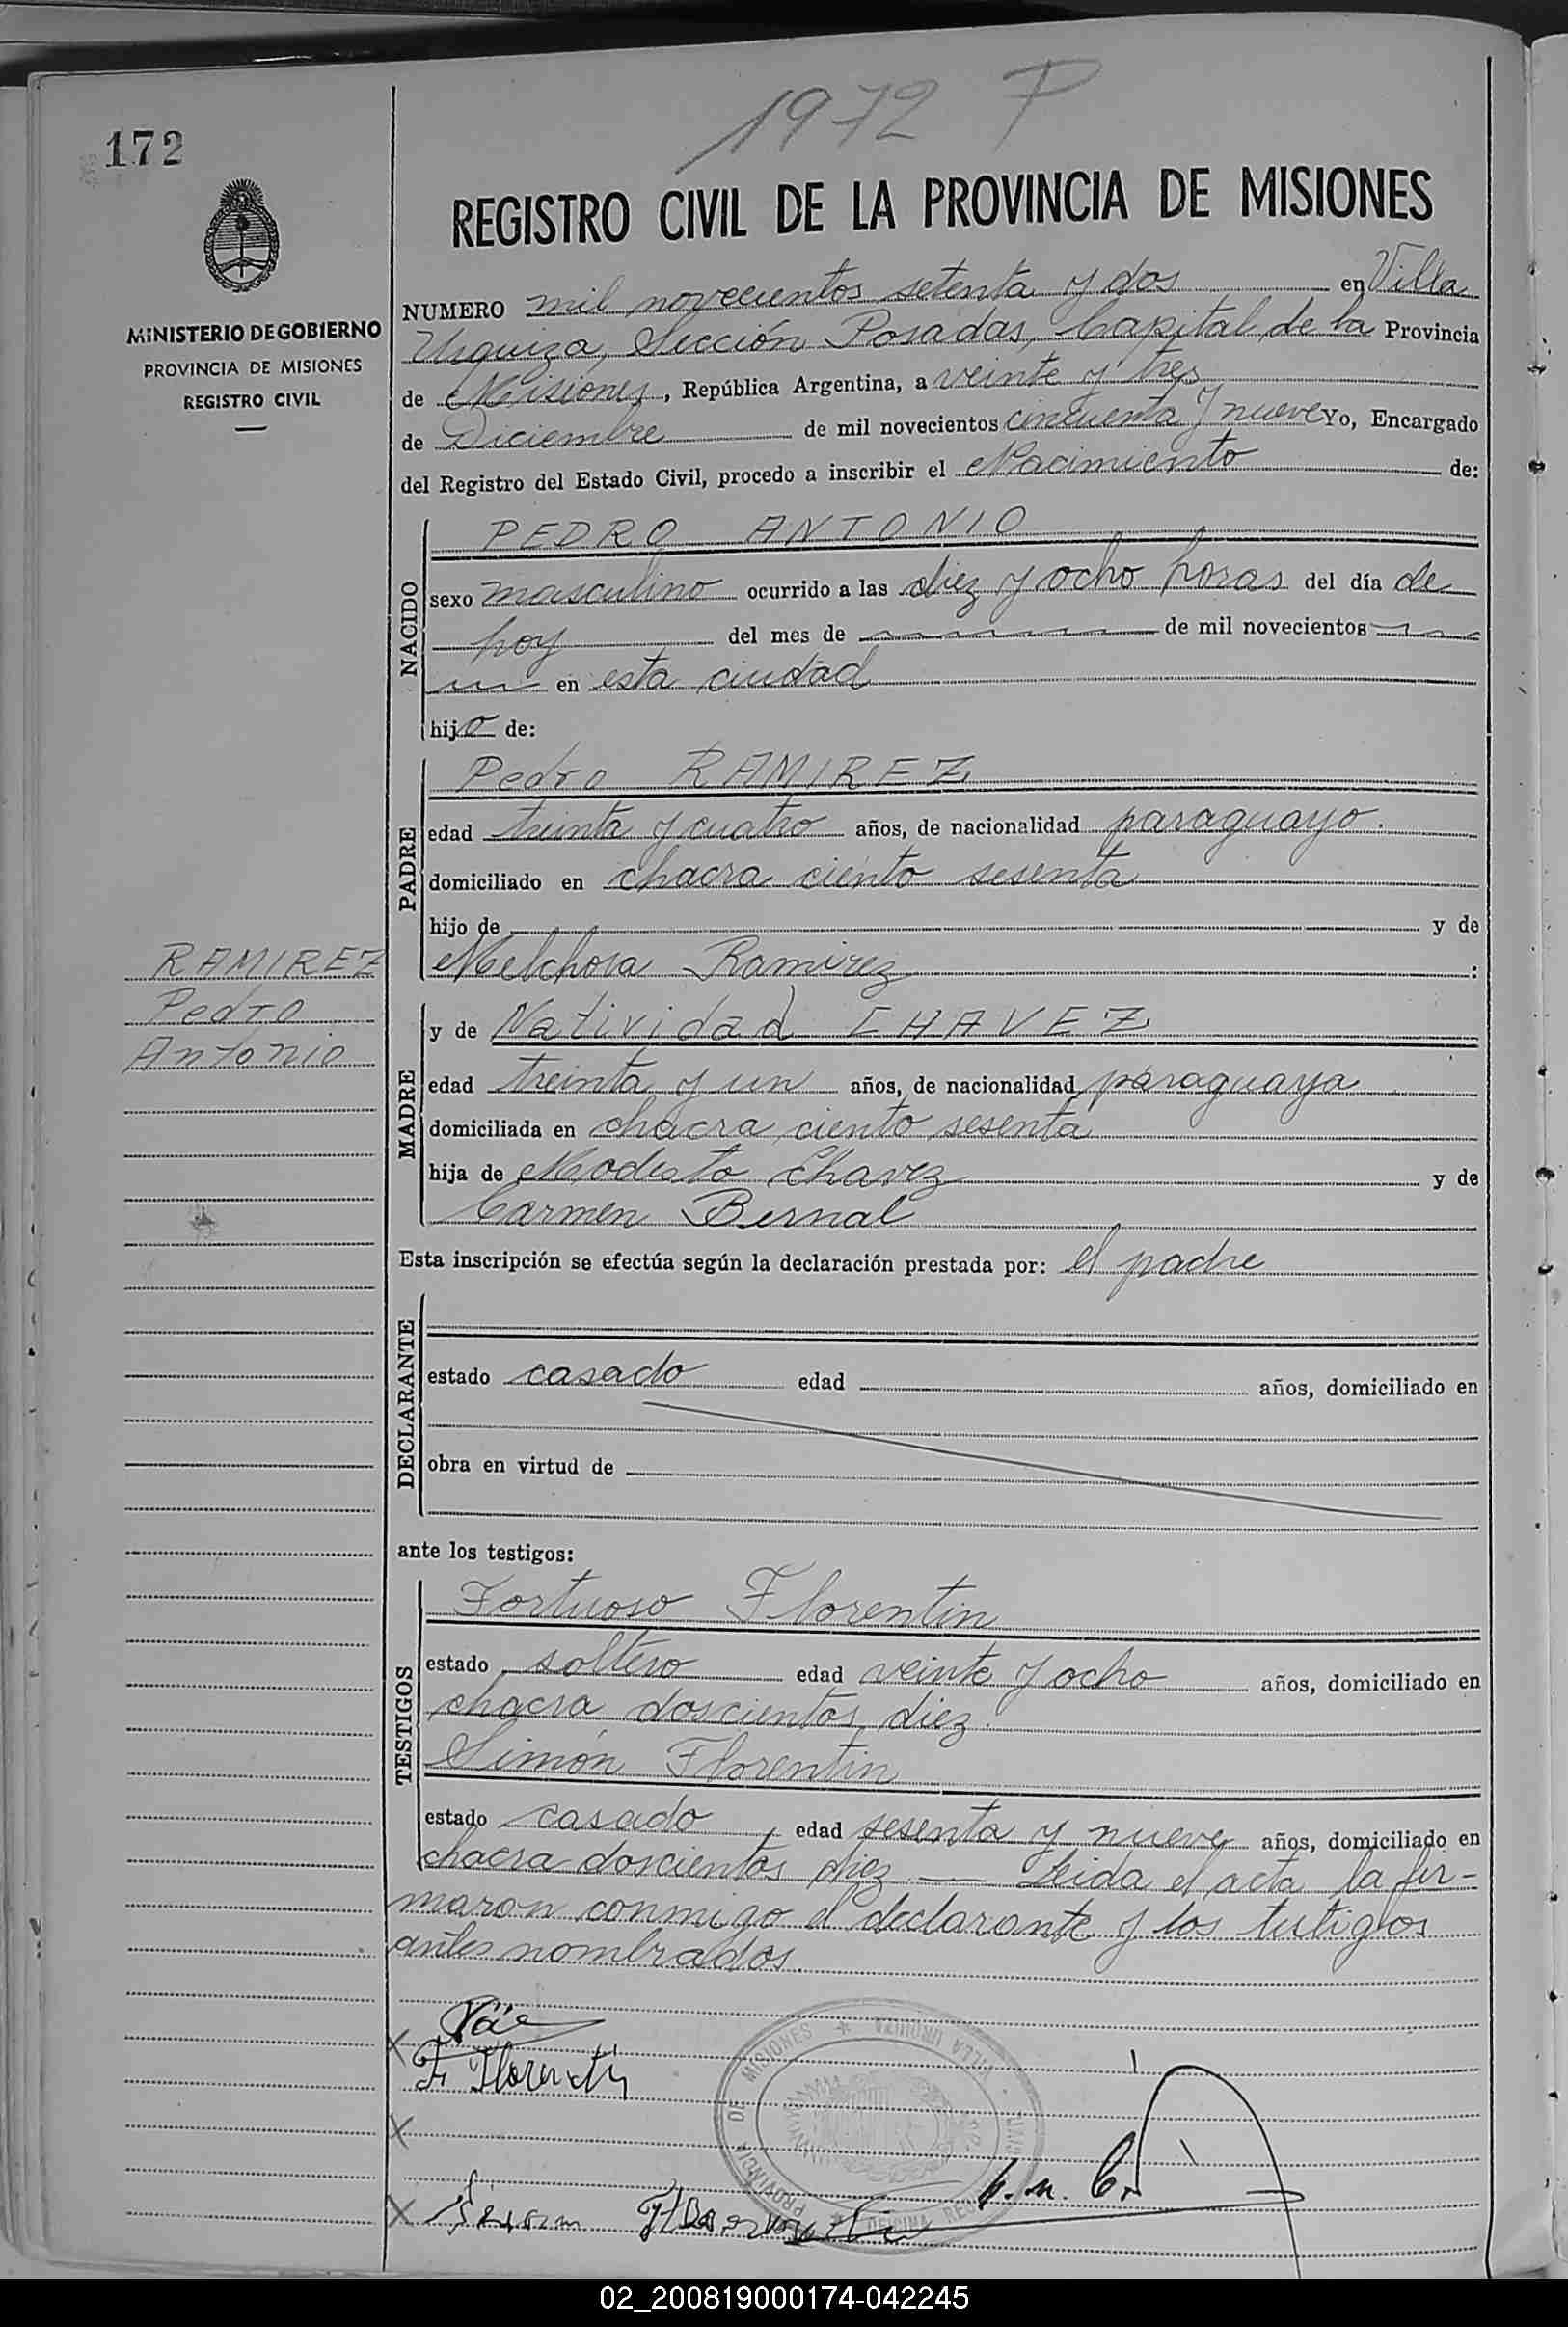 1972 P
172
REGISTRO CIVIL DE LA PROVINCIA DE MISIONES
MINISTERIO DE GOBIERNO
PROVINCIA DE MISIONES
REGISTRO CIVIL
NUMERO mil novecientos setenta y dos en Villa
Urquiza, Sección Posadas, Capital de la Provincia
de Misiones, República Argentina, a veinte y tres
de Diciembre de mil novecientos cincuenta y nueve Yo, Encargado
del Registro del Estado Civil, procedo a inscribir el Nacimiento de:
NACIDO
PEDRO ANTONIO
sexo masculino ocurrido a las diez y ocho horas del día de
hoy del mes de de mil novecientos
en esta ciudad
hijo de:
PADRE
Pedro RAMIREZ
edad treinta y cuatro años, de nacionalidad paraguayo.
domiciliado en chacra ciento sesenta
hijo de y de
Melchora Ramirez :
RAMIREZ
Pedro
Antonio
MADRE
y de Natividad CHAVEZ
edad treinta y un años, de nacionalidad paraguaya
domiciliada en chacra ciento sesenta
hija de Modesto Chavez y de
Carmen Bernal
Esta inscripción se efectúa según la declaración prestada por: el padre
DECLARANTE
estado casado edad años, domiciliado en
obra en virtud de
ante los testigos:
TESTIGOS
Fortuoso Florentin
estado soltero edad veinte y ocho años, domiciliado en
chacra doscientos diez.
Simón Florentin
estado casado, edad sesenta y nueve años, domiciliado en
chacra doscientos diez — Leida el acta la fir-
maron conmigo el declarante y los testigos
antes nombrados.
X
F. Florentin
PROVINCIA DE MISIONES * VILLA URQUIZA
X
X Simon Florentin
02_200819000174-042245